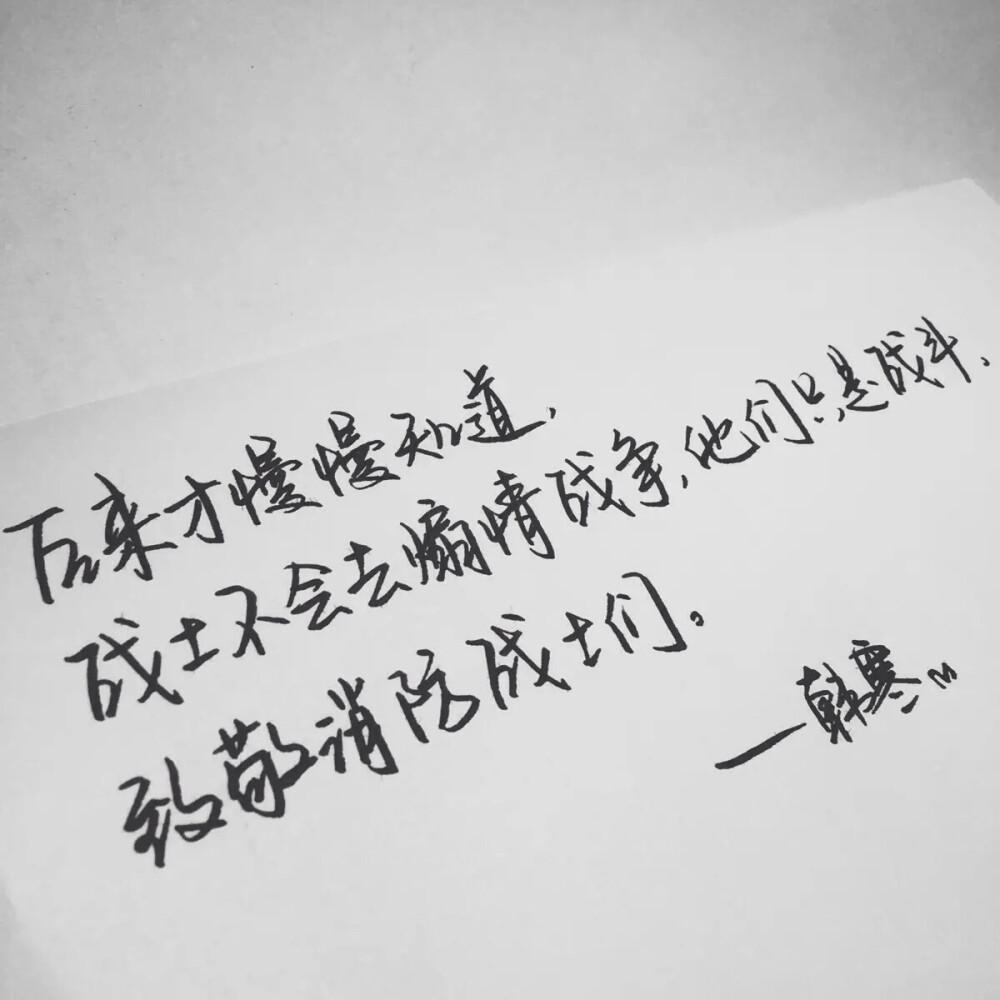 后来才慢慢知道,
战士不会去煽情战争,他们只是战斗、
致敬消防战士们。
—韩寒